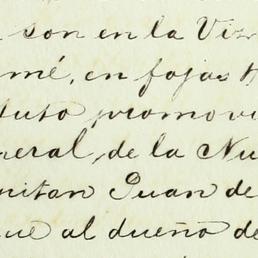 son en la Vir
mé, en fojas
luto promovi
neral, de la Nu
nitan Juan de
que al dueño de